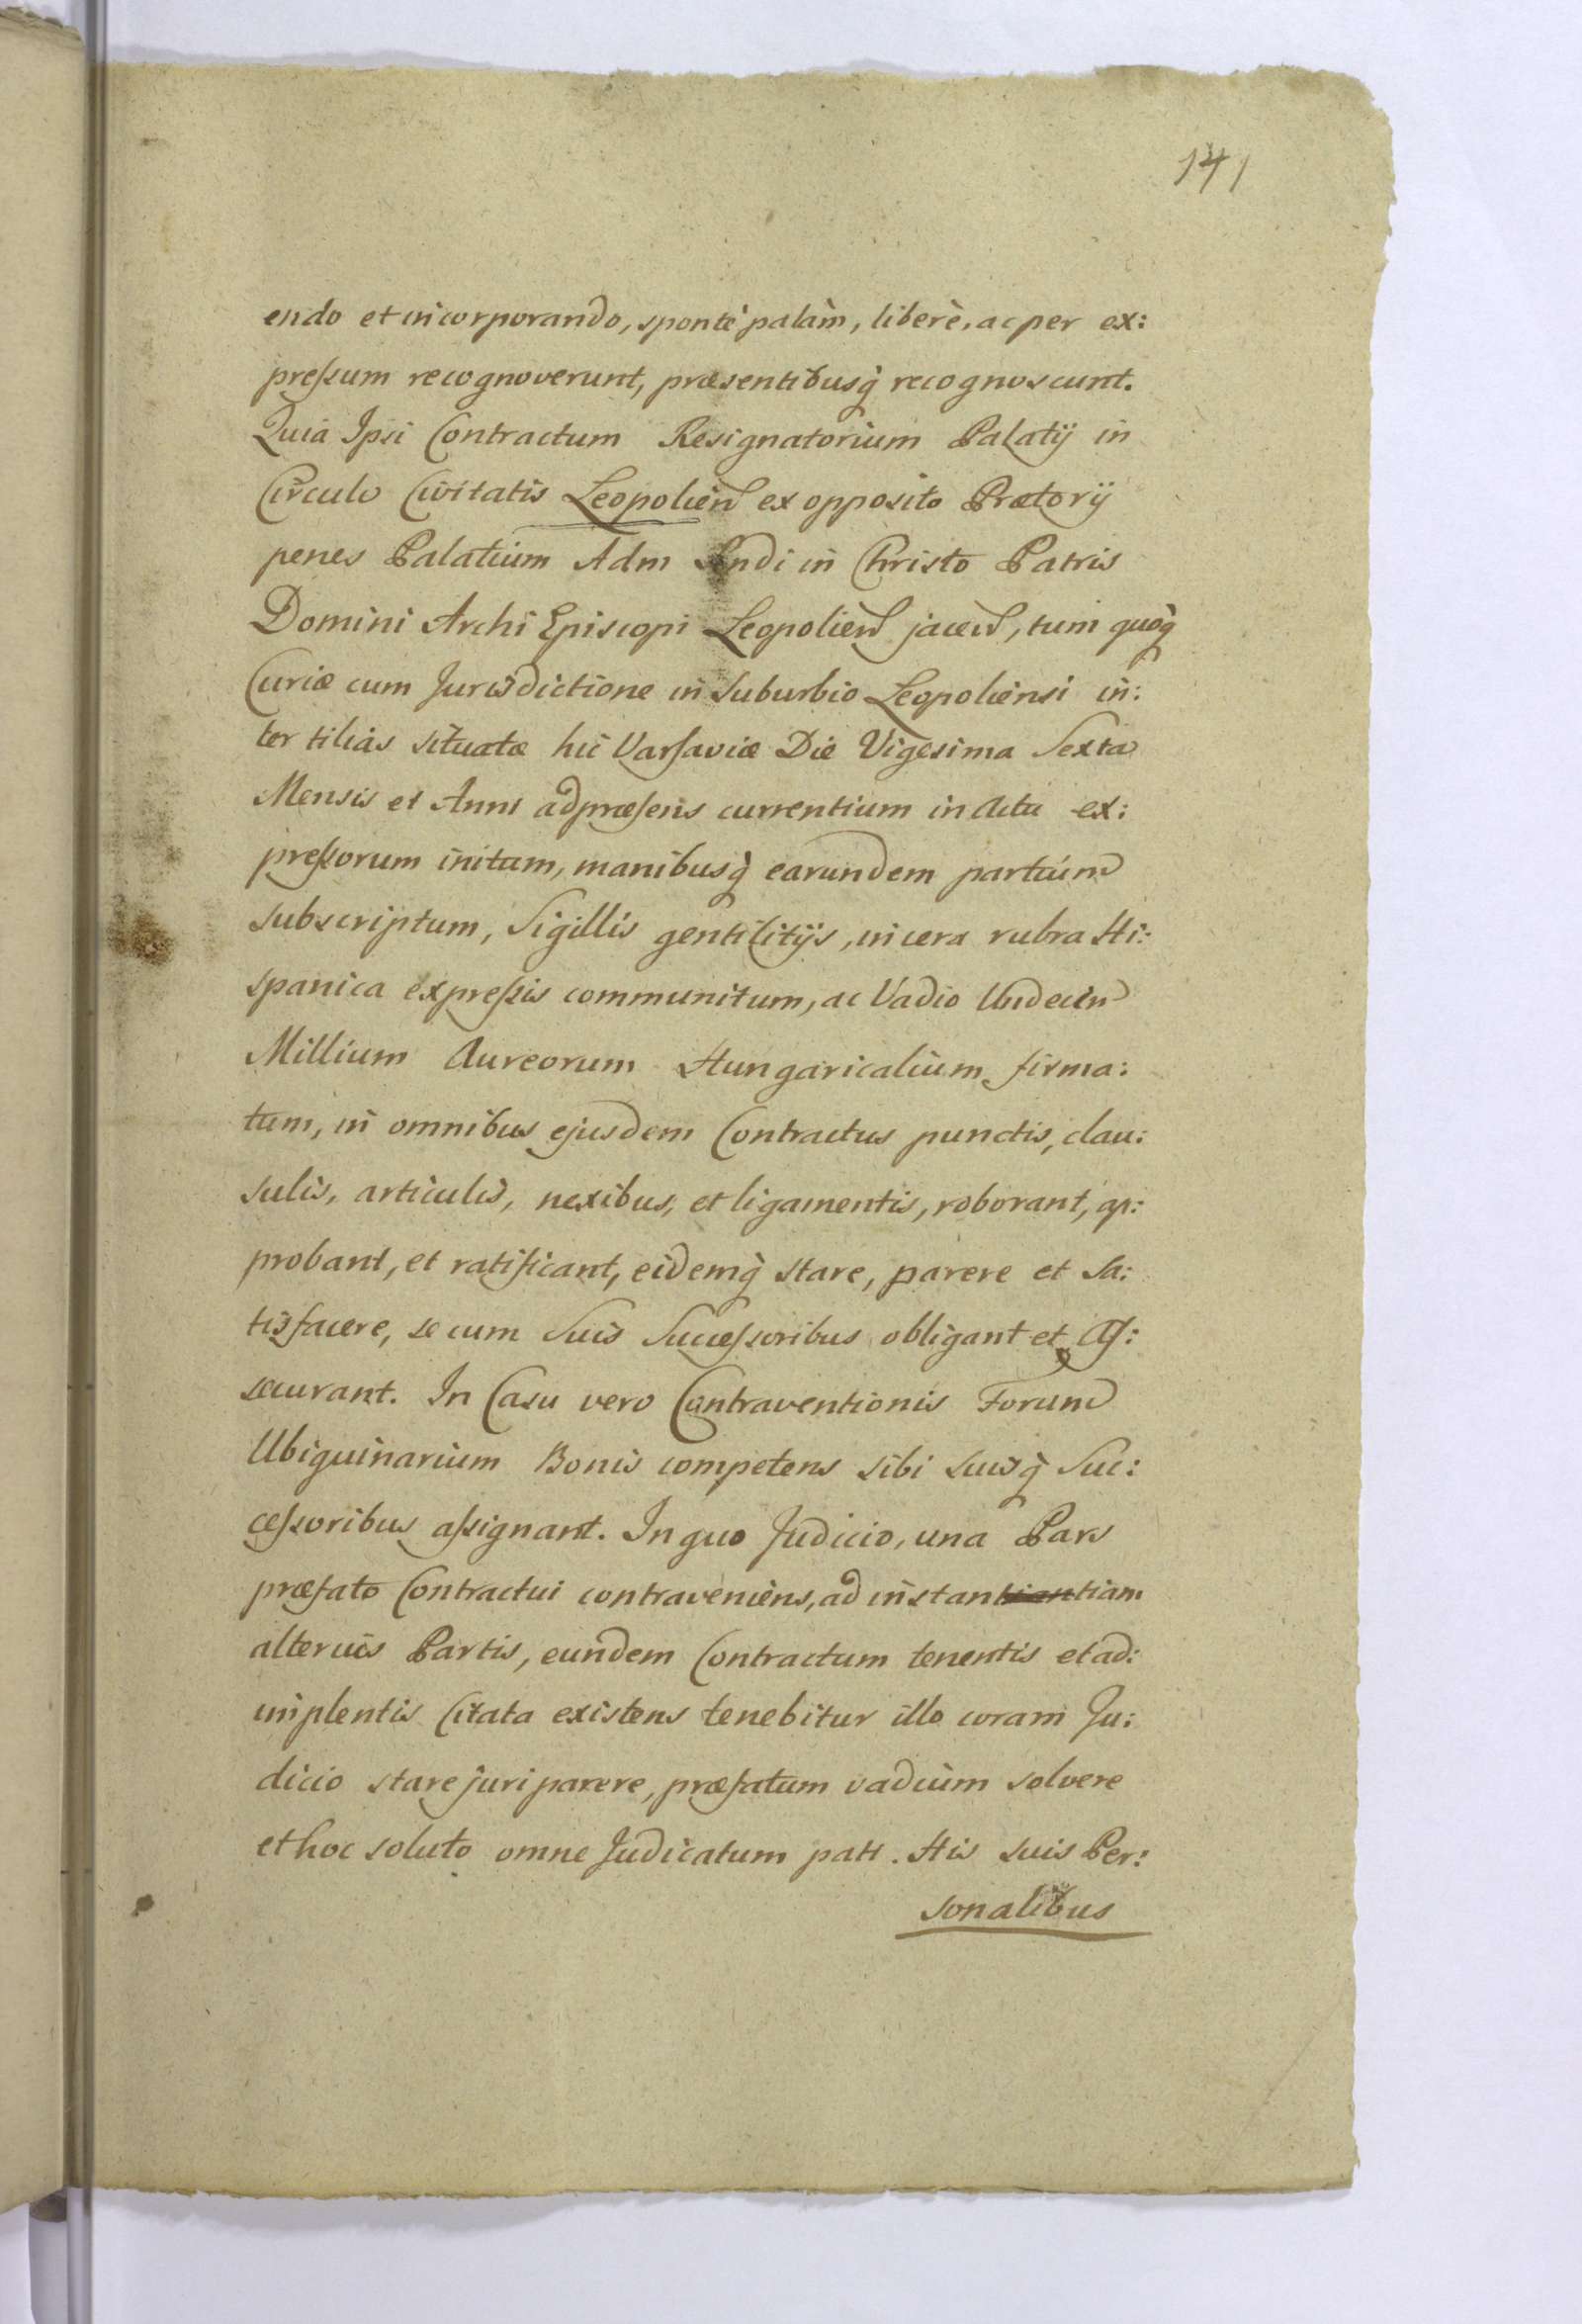 141
endo et incorporando, spontè palàm, liberè, ac per ex:
preſsum recognoverunt, præsentibusq́ recognoscunt.
Quia Ipsi Contractum Resignatorium Palatij in
Circulo Civitatis Leopolien̄ ex opposito Prætorij
penes Palatium Adm Rndi in Christo Patris
Domini Archi Episcopi Leopolien̄ jacen̄, tum quoq́
Curiæ cum Jurisdictione in Suburbio Leopoliensi in:
ter tilias situatæ hic Varſaviæ Die Vigesima Sexta
Mensis et Anni ad præſens currentium in Actu ex:
preſsorum initum, manibusq́ earundem partium
subscriptum, Sigillis gentilitijs, in cera rubra Hi:
spanica expreſsis communitum, ac Vadio Undecim
Millium Aureorum Hungaricalium firma:
tum, in omnibus ejusdem Contractus punctis, clau:
sulis, articulis, nexibus, et ligamentis, roborant, ap:
probant, et ratificant, eidemq́ stare, parere et Sa:
tisfacere, se cum Suis Succeſsoribus obligant et Aſ:
securant. In Casu vero Contraventionis Forum
Ubiquinarium Bonis competens sibi suisq́ Suc:
ceſsoribus aſsignant. In quo Judicio, una Pars
præfato Contractui contraveniens, ad instantiantiam
alterius Partis, eundem Contractum tenentis et ad:
implentis Citata existens tenebitur illo coram Ju:
dicio stare juri parere, præfatum vadium solvere
et hoc soluto omne Judicatum pati. His suis Per:
sonalibus